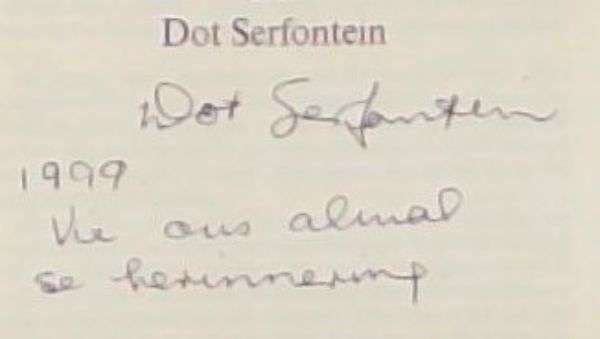 Dot Serfontein
Dot Serfontein
1999
Vir ons almal
se herinnering